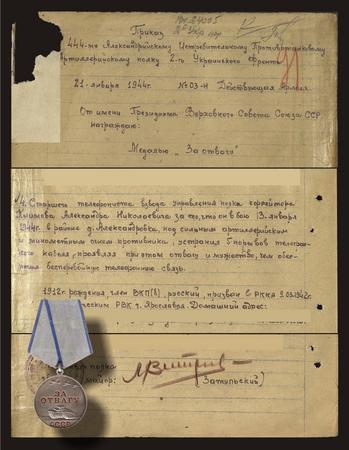 Приказ
444-му Александрийскому Истребительному Противотанковому
Артиллерийскому полку 2-го Украинского Фронта
21 января 1944г. № 03-н Действующая Армия
От имени Президиума Верховного Совета Союза ССР
награждаю:
Медалью „За отвагу"
4. Старшего телефониста взвода управления полка ефрейтора
Александра Николаевича за то, что он в бою 13 января
1944г. в районе д. Александровка под сильным артиллерийским
и минометным огнем противника, устранил 5 порывов телефон-
ного кабеля, проявляя при этом отвагу и мужество, чем обес-
печил бесперебойную телефонную связь.
1912г. рождения, член ВКП(б), русский, призван в РККА 9.03.1942г.
ским РВК г. Ярославля. Домашний адрес:
полка
майор: Затульский)
ЗА
ОТВАГУ
СССР